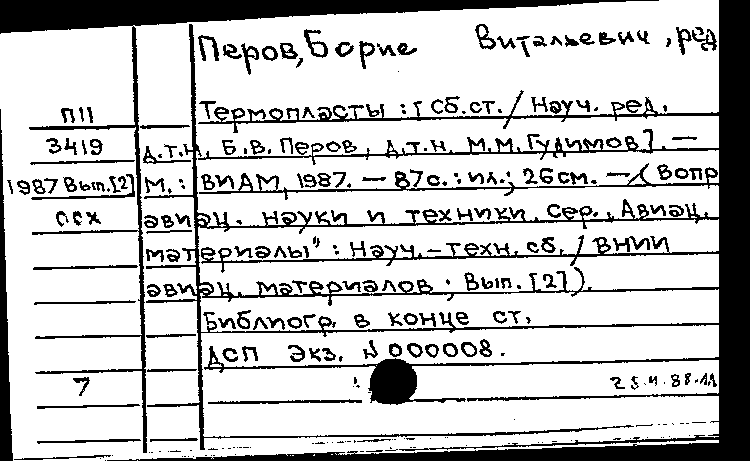 Перов, Борис Витальевич, ред
П11 Термопласты : [Сб.ст. / Науч. ред.
3419 д.т.н. Б.В. Перов, д.т.н. М.М. Гудимов]. —
1987 Вып.[2] М. : ВИАМ, 1987. — 87с. : ил.; 26см. — (Вопр
осх авиац. науки и техники. Сер., Авиац.
материалы" : Науч.-техн. сб. / ВНИИ
авиац. материалов ; Вып. [2]).
Библиогр. в конце ст.
ДСП Экз. №000008.
7